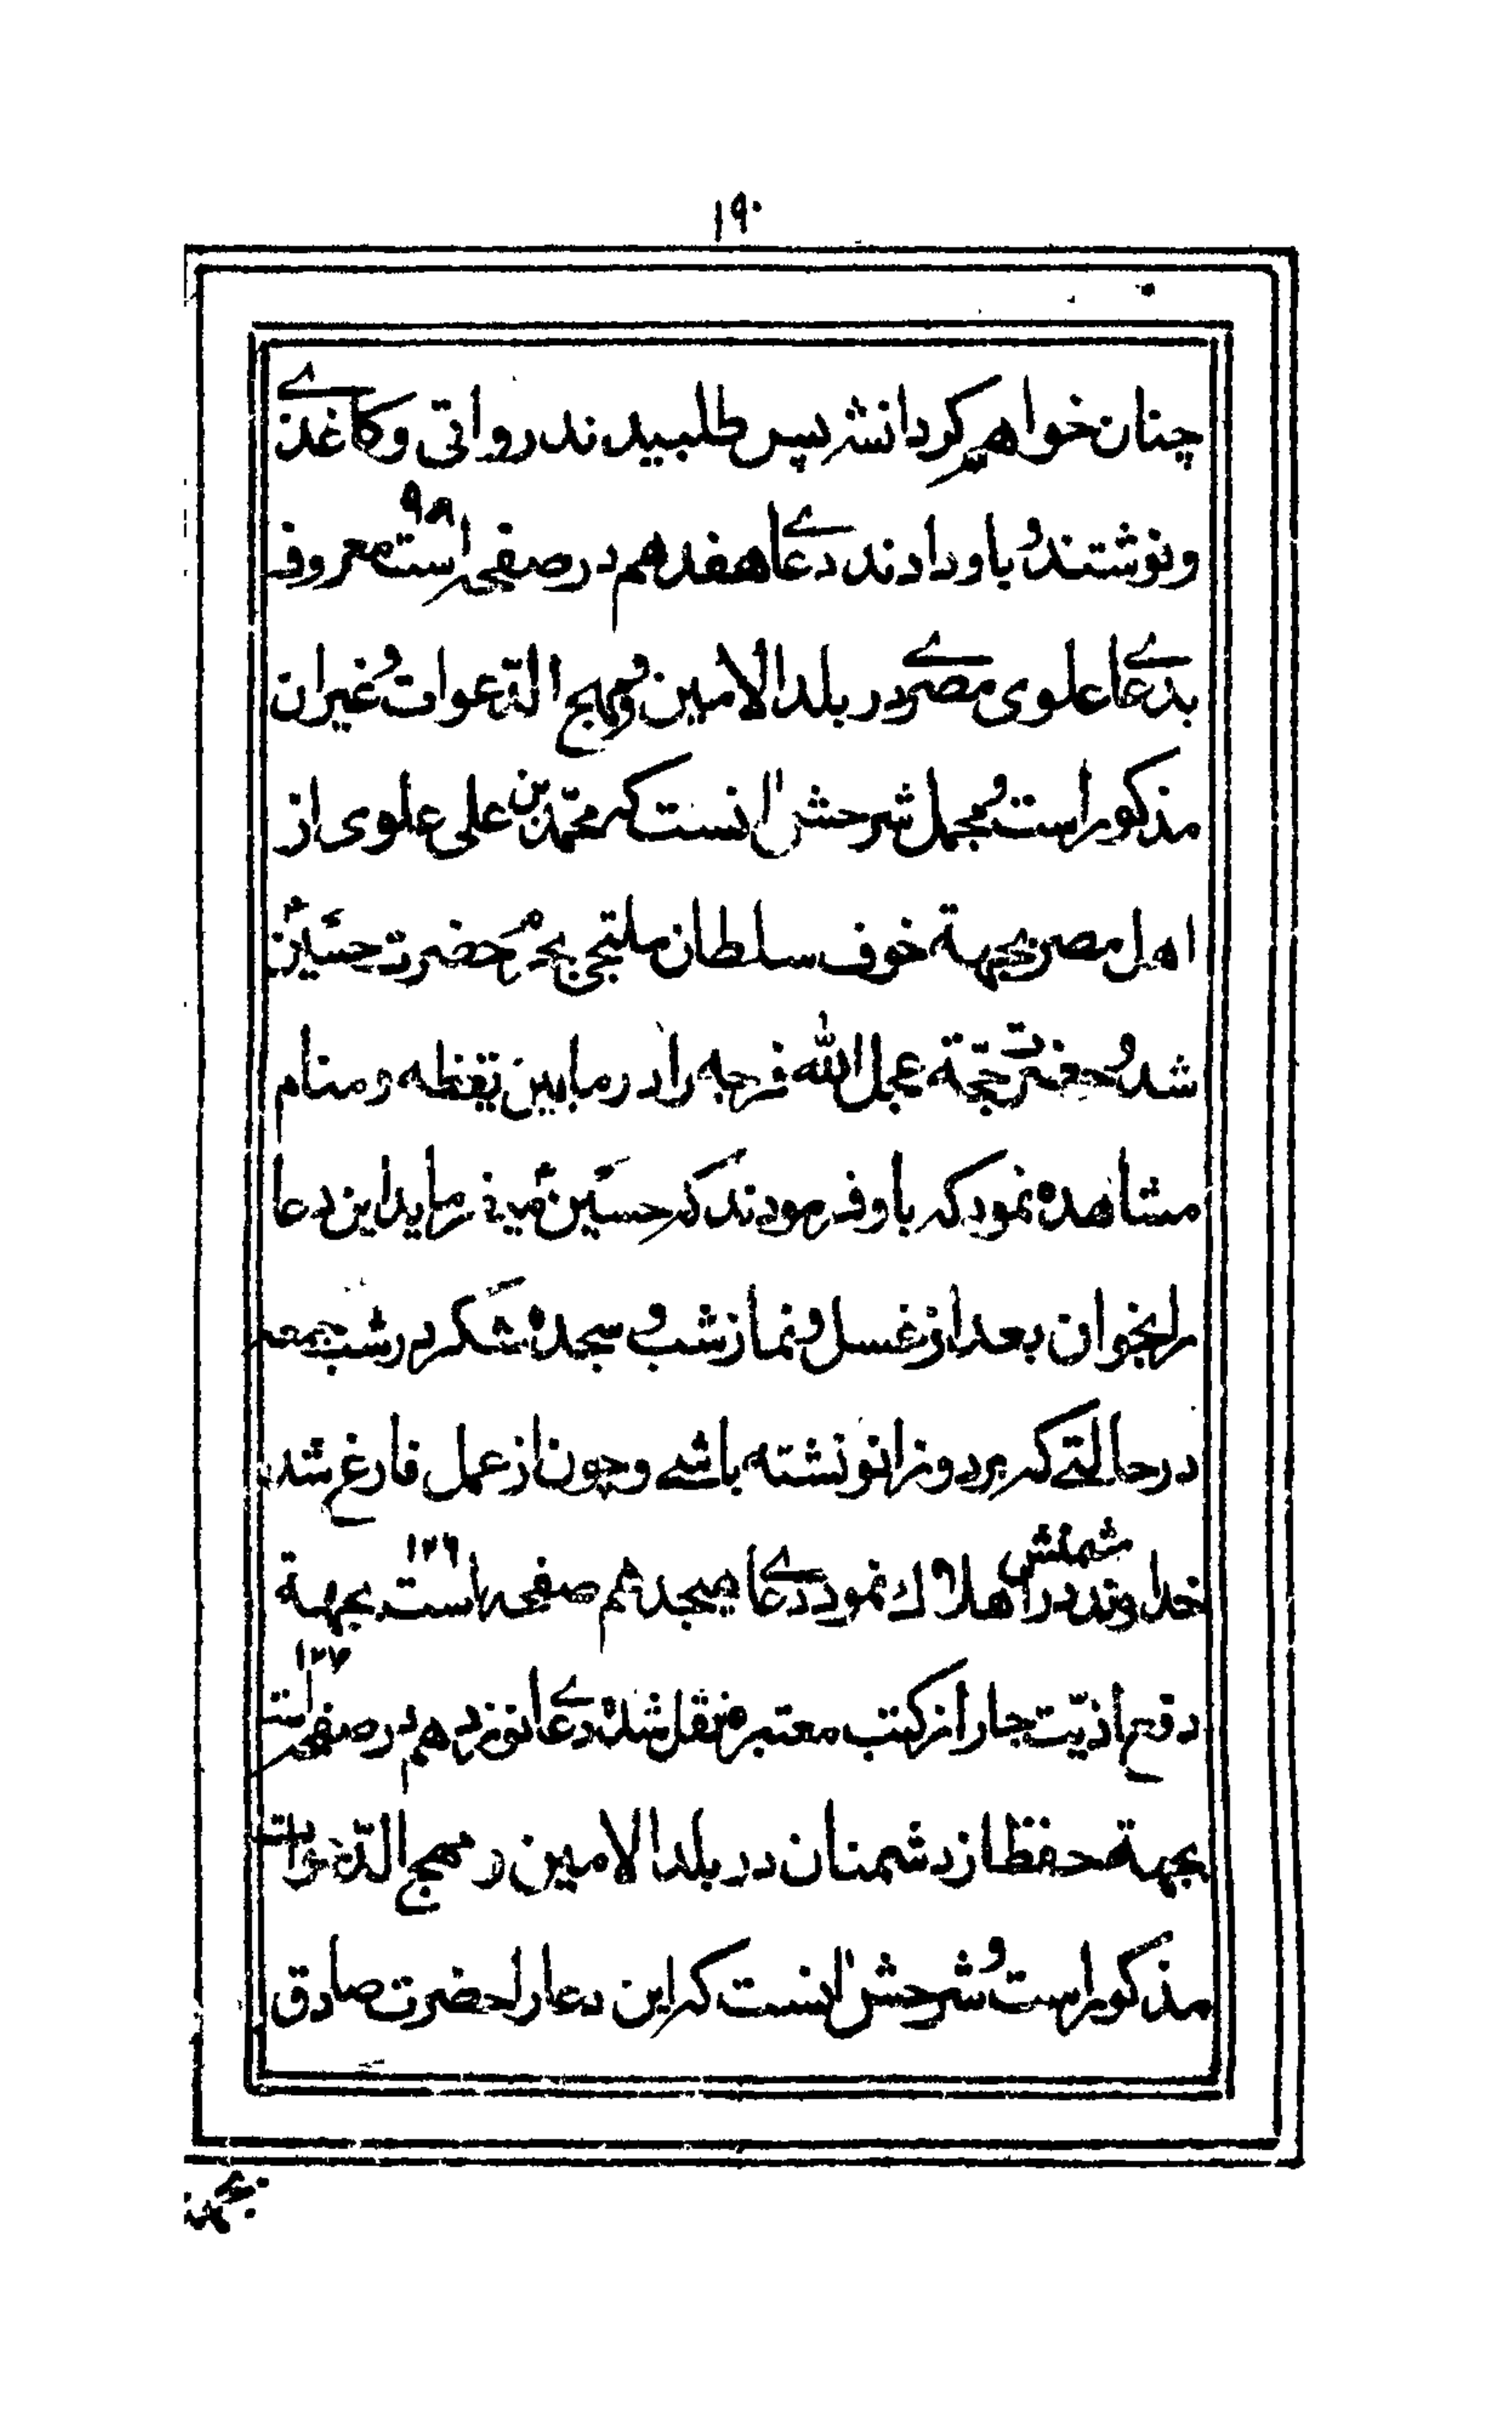 ۱۹۰
چنان خواهم کرد انشر پس طلبیدند دواتی و کاغذے
و نوشتند و باو دادند دعاے هفدهم در صفحه ۹۸ است معروف
بدعاے علوی مصرے در بلد الامین و مهج الدّعوات و غیر ان
مذکور است و مجمل شرحش انست که محمّد بن علی علوی از
اهل مصر بجهة خوف سلطان ملتجی بحرم حضرت حسین ع
شد و حضرت حجّة عجل الله فرجه را در مابین یقظه و منام
مشاهده نمود که باو فرمودند که حسین ع میفرماید این دعا
را بخوان بعد از غسل و نماز شب و سجده شکر در شب جمعه
در حالتے که بر دو زانو نشته باشے و چون از عمل فارغ شد
خداوند دشمنش را هلاك نمود دعاے هیجدهم صفحه ۱۲۶ است بجهة
دفع اذیّت جار از کتب معتبره نقل شده دعاے نوزدهم در صفحه ۱۲۷ است
بجهة حفظ از دشمنان در بلد الامین و مهج الدّعوات
مذکور است و شرحش انست که این دعا را حضرت صادق